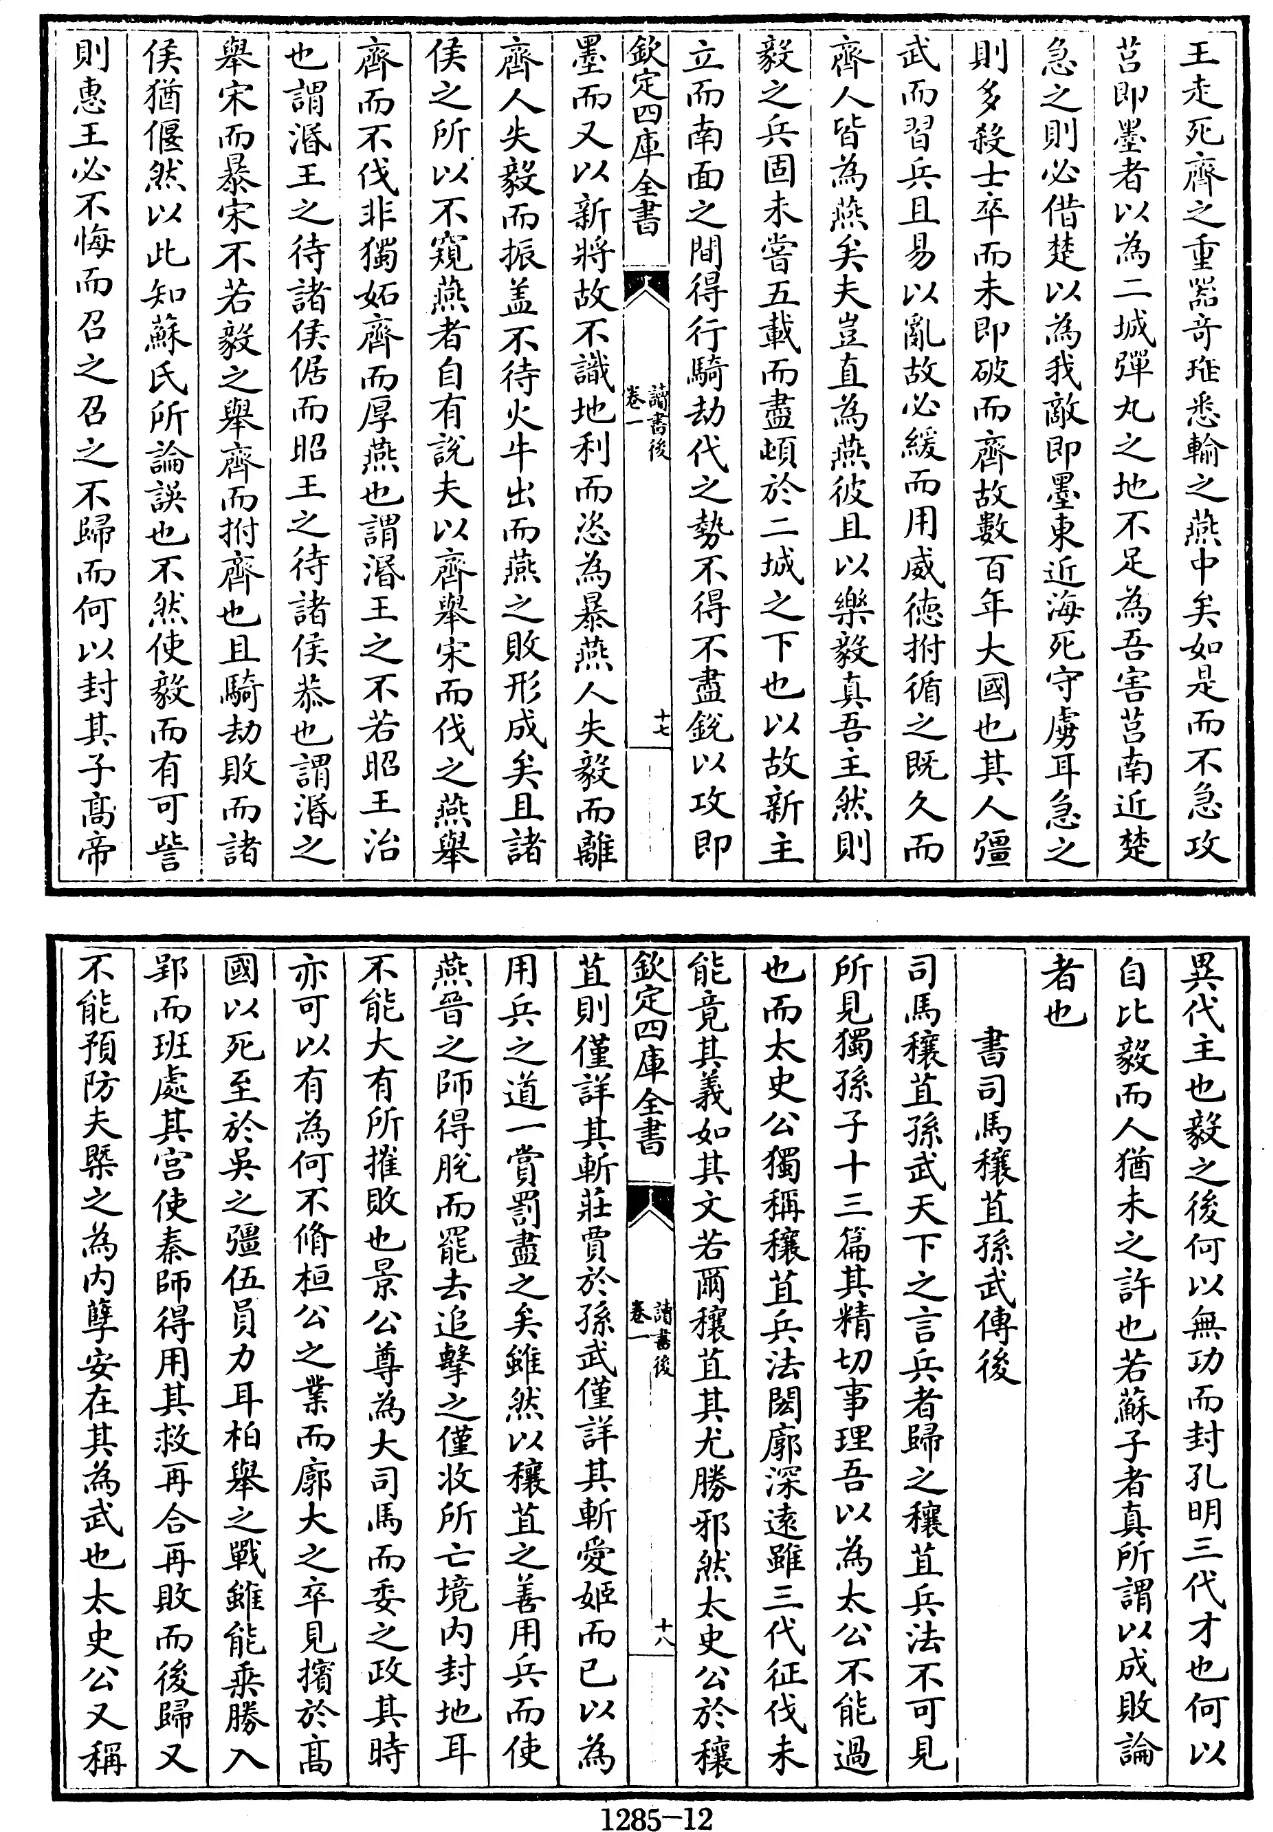 王走死齊之重器奇琟悉輸之燕中矣如是而不急攻
莒即墨者以為二城彈丸之地不足為吾害莒南近楚
急之則必借楚以為我敵即墨東近海死守虜耳急之
則多殺士卒而未即破而齊故數百年大國也其人彊
武而習兵且易以亂故必緩而用威德拊循之既久而
齊人皆為燕矣夫豈直為燕彼且以樂毅真吾主然則
毅之兵固未嘗五載而盡頓於二城之下也以故新主
立而南面之間得行騎劫代之勢不得不盡銳以攻即
欽定四庫全書
讀書後
卷一
十七
墨而又以新將故不識地利而恣為暴燕人失毅而離
齊人失毅而振蓋不待火牛出而燕之敗形成矣且諸
侯之所以不窺燕者自有說夫以齊舉宋而伐之燕舉
齊而不伐非獨妬齊而厚燕也謂湣王之不若昭王治
也謂湣王之待諸侯倨而昭王之待諸侯恭也謂湣之
舉宋而暴宋不若毅之舉齊而拊齊也且騎劫敗而諸
侯猶偃然以此知蘇氏所論誤也不然使毅而有可訾
則惠王必不悔而召之召之不歸而何以封其子髙帝
異代主也毅之後何以無功而封孔明三代才也何以
自比毅而人猶未之許也若蘇子者真所謂以成敗論
者也
書司馬穰苴孫武傳後
司馬穰苴孫武天下之言兵者歸之穰苴兵法不可見
所見獨孫子十三篇其精切事理吾以為太公不能過
也而太史公獨稱穰苴兵法閎廓深遠雖三代征伐未
能竟其義如其文若爾穰苴其尤勝邪然太史公於穰
欽定四庫全書
讀書後
卷一
十八
苴則僅詳其斬莊賈於孫武僅詳其斬愛姬而已以為
用兵之道一賞罰盡之矣雖然以穰苴之善用兵而使
燕晉之師得脫而罷去追擊之僅收所亡境内封地耳
不能大有所摧敗也景公尊為大司馬而委之政其時
亦可以有為何不脩桓公之業而廓大之卒見擯於髙
國以死至於吳之彊伍員力耳柏舉之戰雖能乘勝入
郢而班處其宮使秦師得用其救再合再敗而後歸又
不能預防夫槩之為内孽安在其為武也太史公又稱
1285-12